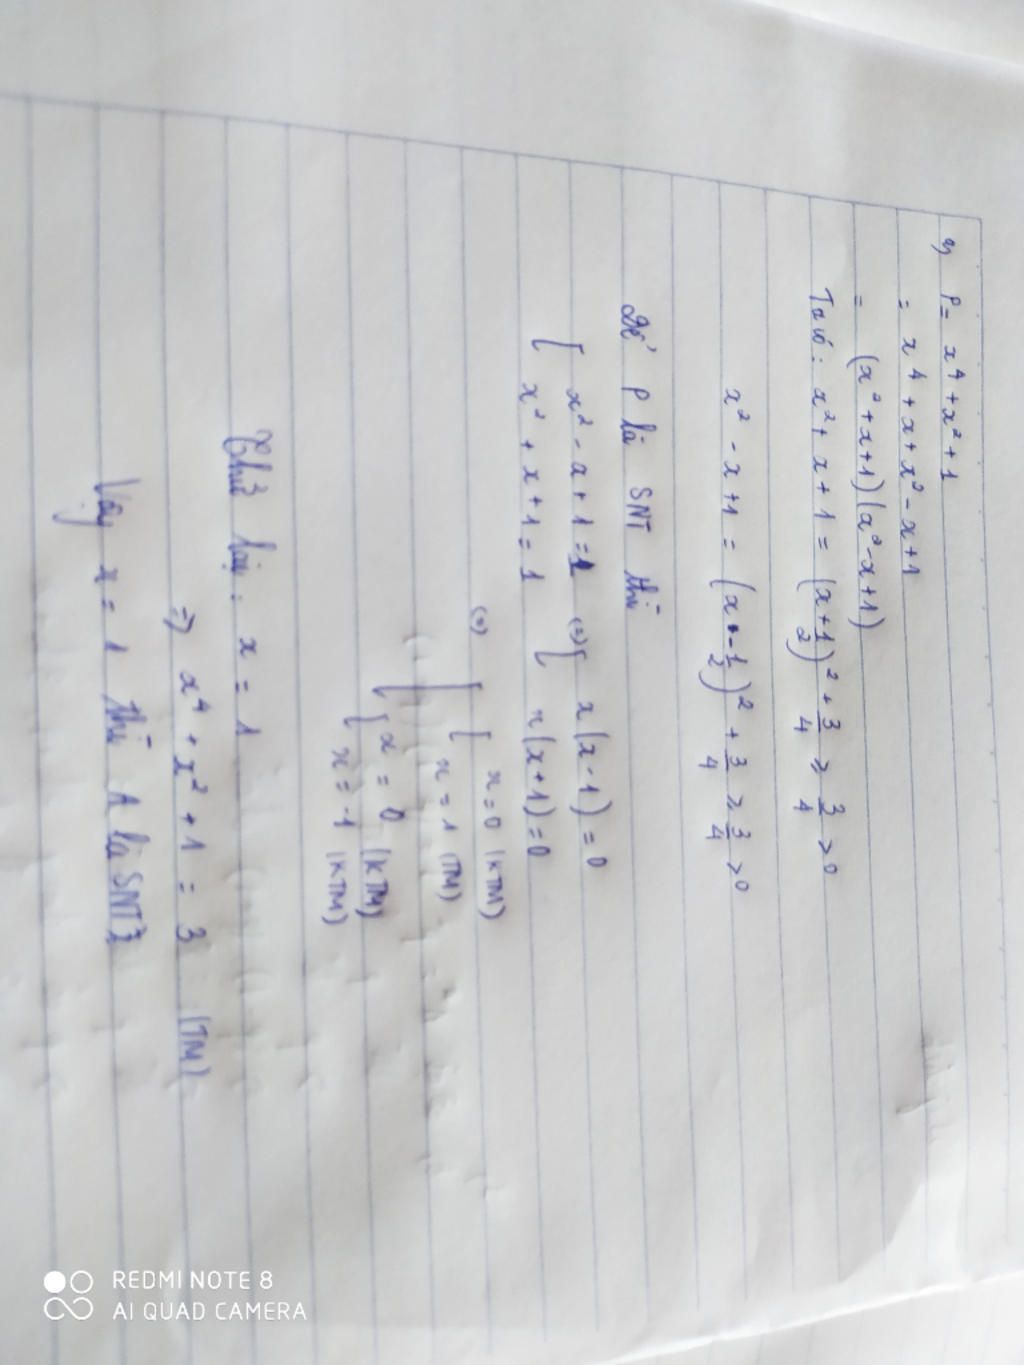 y) P = x⁴ + x² + 1
= x⁴ + x + x² - x + 1
= (x² + x + 1)(x² - x + 1)
Ta có: x² + x + 1 = (x + 1/2)² + 3/4 ≥ 3/4 > 0
x² - x + 1 = (x - 1/2)² + 3/4 ≥ 3/4 > 0
Để P là SNT thì
[ x² - x + 1 = 1 (=) [ x(x - 1) = 0
[ x² + x + 1 = 1 [ x(x + 1) = 0
(=) [ [ x = 0 (KTM)
[ x = 1 (TM)
[ x = 0 (KTM)
[ x = -1 (KTM)
Thử lại: x = 1
=> x⁴ + x² + 1 = 3 (TM)
Vậy x = 1 thì A là SNT
REDMI NOTE 8
AI QUAD CAMERA